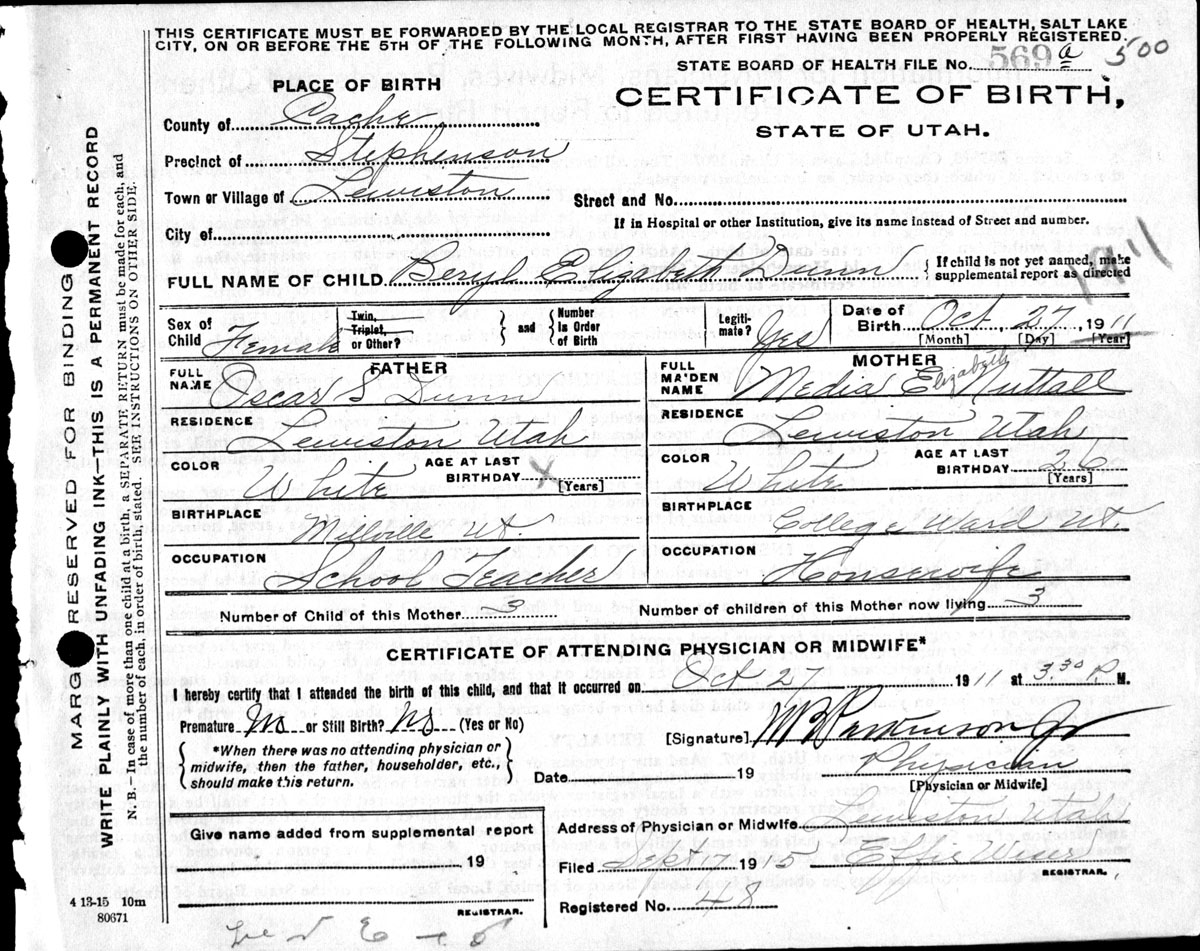 THIS CERTIFICATE MUST BE FORWARDED BY THE LOCAL REGISTRAR TO THE STATE BOARD OF HEALTH, SALT LAKE
CITY, ON OR BEFORE THE 5TH OF THE FOLLOWING MONTH, AFTER FIRST HAVING BEEN PROPERLY REGISTERED.
STATE BOARD OF HEALTH FILE No. 569 a 500
PLACE OF BIRTH
CERTIFICATE OF BIRTH,
STATE OF UTAH.
County of Cache
Precinct of Stephinson
Town or Village of Lewiston
Street and No.
If in Hospital or other Institution, give its name instead of Street and number.
City of
1911
FULL NAME OF CHILD Beryl Elizabeth Dunn { If child is not yet named, make supplemental report as directed
Sex of Child Female Twin, Triplet, or Other? } and { Number in Order of Birth Legiti-mate? Yes Date of Birth Oct 27, 1911
[Month] [Day] [Year]
FATHER MOTHER
FULL NAME Oscar S Dunn FULL MAIDEN NAME Media Elizabeth Nuttall
RESIDENCE Lewiston Utah RESIDENCE Lewiston Utah
COLOR White AGE AT LAST BIRTHDAY X [Years] COLOR White AGE AT LAST BIRTHDAY 26 [Years]
BIRTHPLACE Millville Ut. BIRTHPLACE College Ward Ut.
OCCUPATION School Teacher OCCUPATION Housewife
Number of Child of this Mother 3 Number of children of this Mother now living 3
CERTIFICATE OF ATTENDING PHYSICIAN OR MIDWIFE*
I hereby certify that I attended the birth of this child, and that it occurred on Oct 27 1911 at 3:30 P. M.
Premature No or Still Birth? No (Yes or No)
[Signature] W B Parkinson Jr
{ *When there was no attending physician or midwife, then the father, householder, etc., should make this return. }
Date 19 Physician
[Physician or Midwife]
Give name added from supplemental report
19
REGISTRAR.
Address of Physician or Midwife Lewiston Utah
Filed Sept 17 1915 Effie Wiser
REGISTRAR.
Registered No. 48
MARG RESERVED FOR BINDING
WRITE PLAINLY WITH UNFADING INK—THIS IS A PERMANENT RECORD
N. B.—In case of more than one child at a birth, a SEPARATE RETURN must be made for each, and
the number of each, in order of birth, stated. SEE INSTRUCTIONS ON OTHER SIDE.
4 13-15 10m
80671